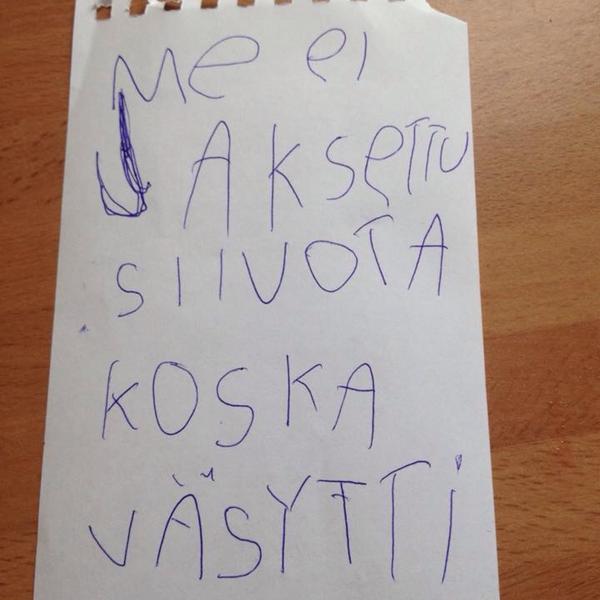 Me ei
JAKSeTTU
SIIVOTA
KOSKA
VÄSYTTi